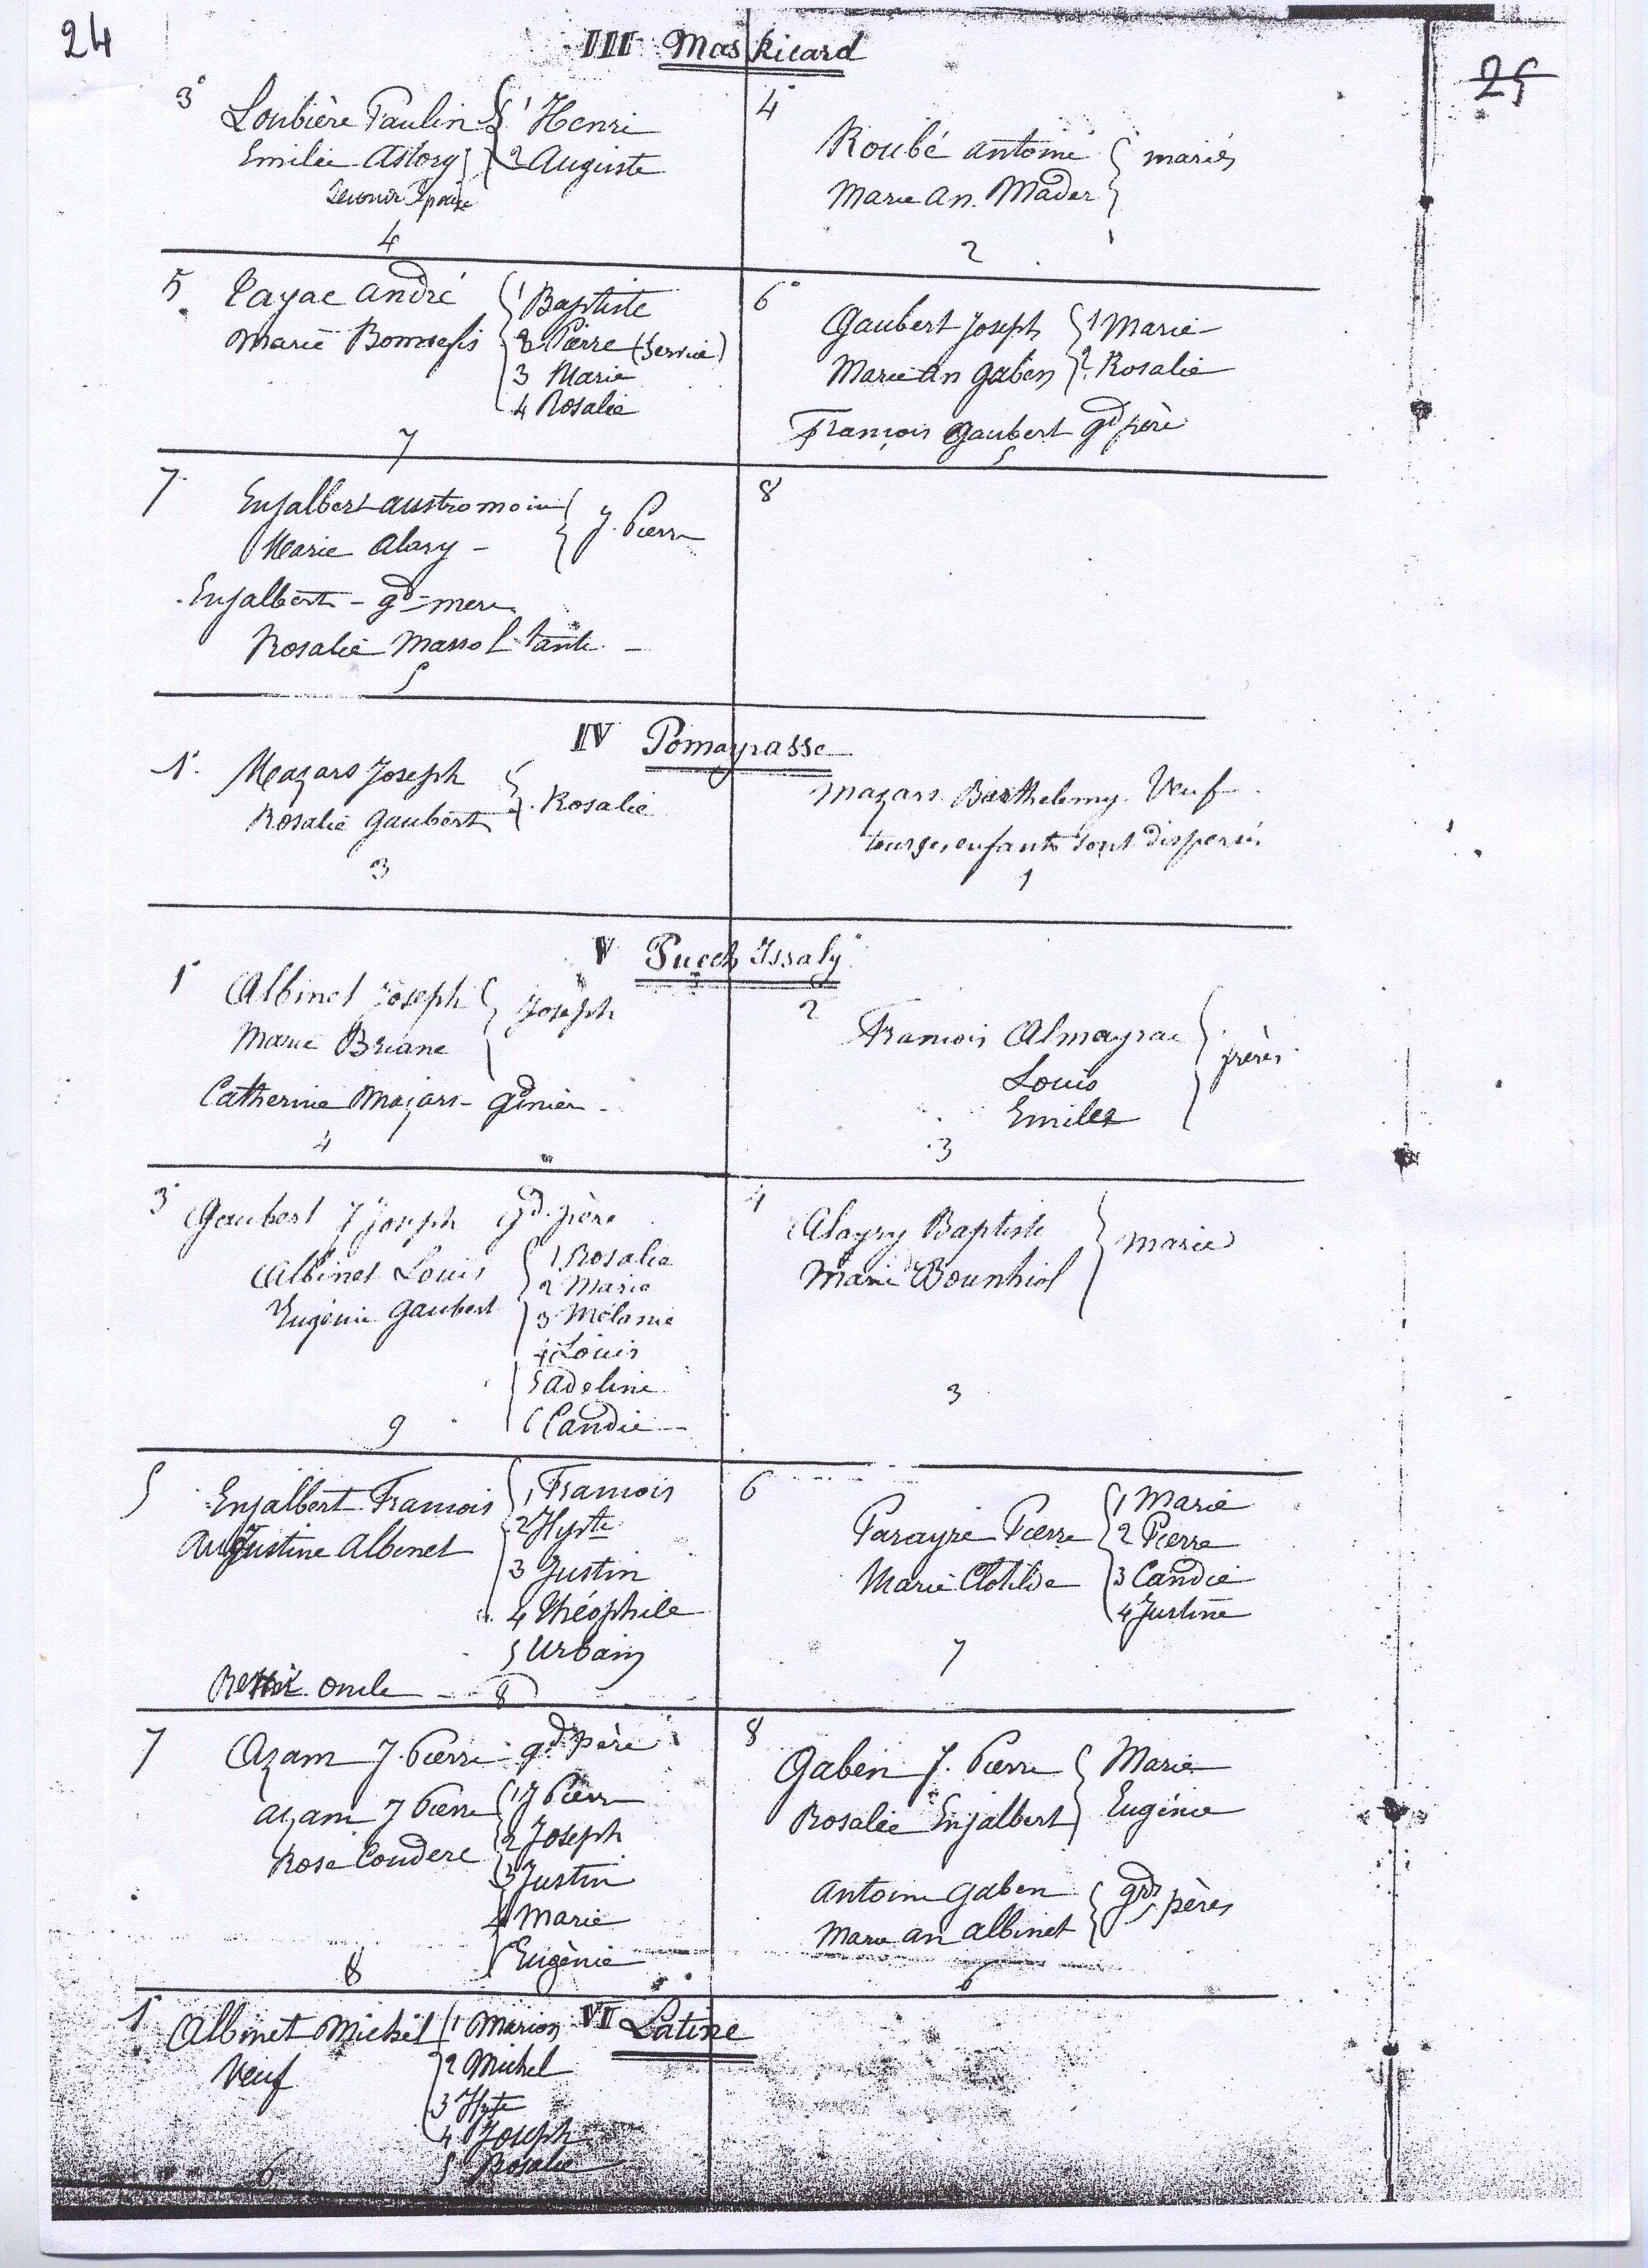 24
25
III Mas Ricard
3°
Loubière Paulin 1 Henri
Emilie Astorg 2 Auguste
Second Epouse
4
4°
Roubé Antoine mariés
Marie An. Mader
2
5
Cayac André 1 Baptiste
Marie Bonnefis 2 Pierre (Service)
3 Marie
4 Rosalie
7
6°
Gaubert Joseph 1 Marie
Marie An Gaben 2 Rosalie
François Gaubert gd père
5
7
Enjalbert Austromoin J. Pierre
Marie Alary -
Enjalbert - gd-mere
Rosalie Massol tante -
5
8
IV Pomayrasse
1°
Mazars Joseph Rosalie
Rosalie Gaubert
3
Mazars Barthelemy Veuf
tous ses enfants sont dispersés
1
V Puech Issaly
1°
Albinet Joseph Joseph
Marie Briane
Catherine Mazars - gd mèr -
4
2
François Almayrac frères
Louis
Emile
3
3°
Gaubert J Joseph gd. père
Albinet Louis 1 Rosalie
Eugénie Gaubert 2 Marie
3 Mélanie
4 Louis
5 Adeline
6 Candie
9
4
Alayry Baptiste Marie
Marie Bounhiol
3
5
Enjalbert François 1 François
Augustine Albinet 2 Hyte
3 Justin
4 Théophile
5 Urbain
oncle 8
6
Parayre Pierre 1 Marie
Marie Clotilde 2 Pierre
3 Candie
4 Justine
7
7
Azam J. Pierre gd. Père
Azam J Pierre 1 J Pierre
Rose Couderc 2 Joseph
3 Justin
4 Marie
5 Eugènie
8
8
Gaben J. Pierre Marie
Rosalie Enjalbert Eugénie
Antoine Gaben gds pères
Marie An Albinet
6
VI Latine
1°
Albinet Michel 1 Marion
Veuf 2 Michel
3 Hyte
4 Joseph
5 Rosalie
6